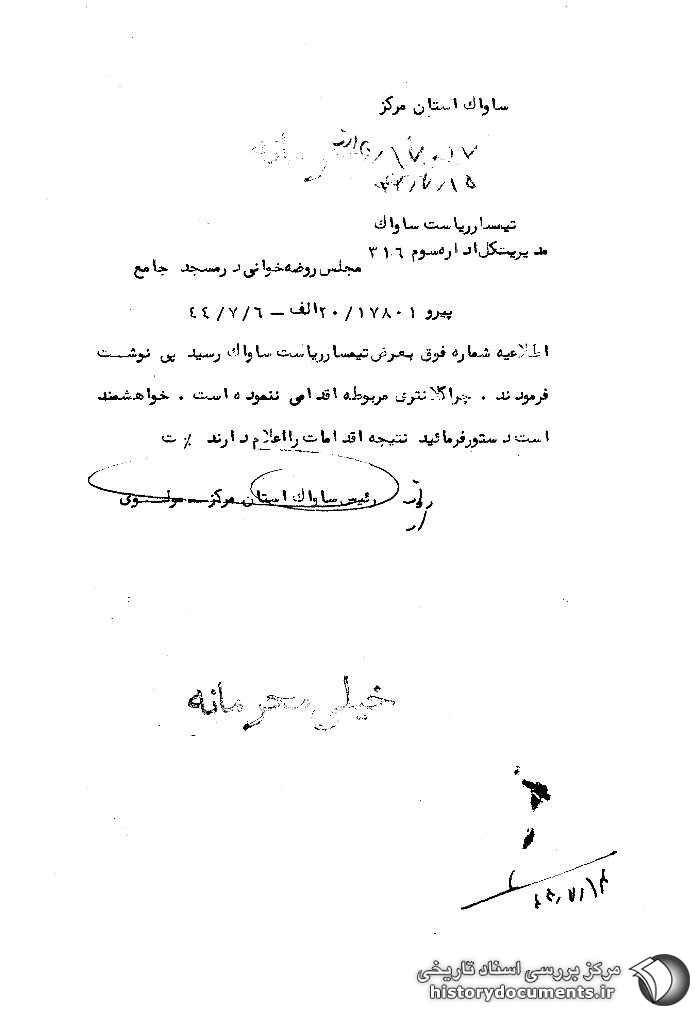 ساواك استان مرکز
۴۴/۷/۱۵
تیمسار ریاست ساواك
مدیریتکل اداره سوم ۳۱۶
مجلس روضه خوانی در مسجد جامع
پیرو ۱۷۸۰۱/۲۰الف – ۴۴/۷/۶
اطلاعیه شماره فوق بعرض تیمسار ریاست ساواك رسید پی نوشت
فرمودند . چرا کلانتری مربوطه اقدامی ننموده است . خواهشمند
است دستور فرمائید نتیجه اقدامات را اعلام دارند ٪ ت
رئیس ساواك استان مرکز – مولوی
خیلی محرمانه
مرکز بررسی اسناد تاریخی
historydocuments.ir